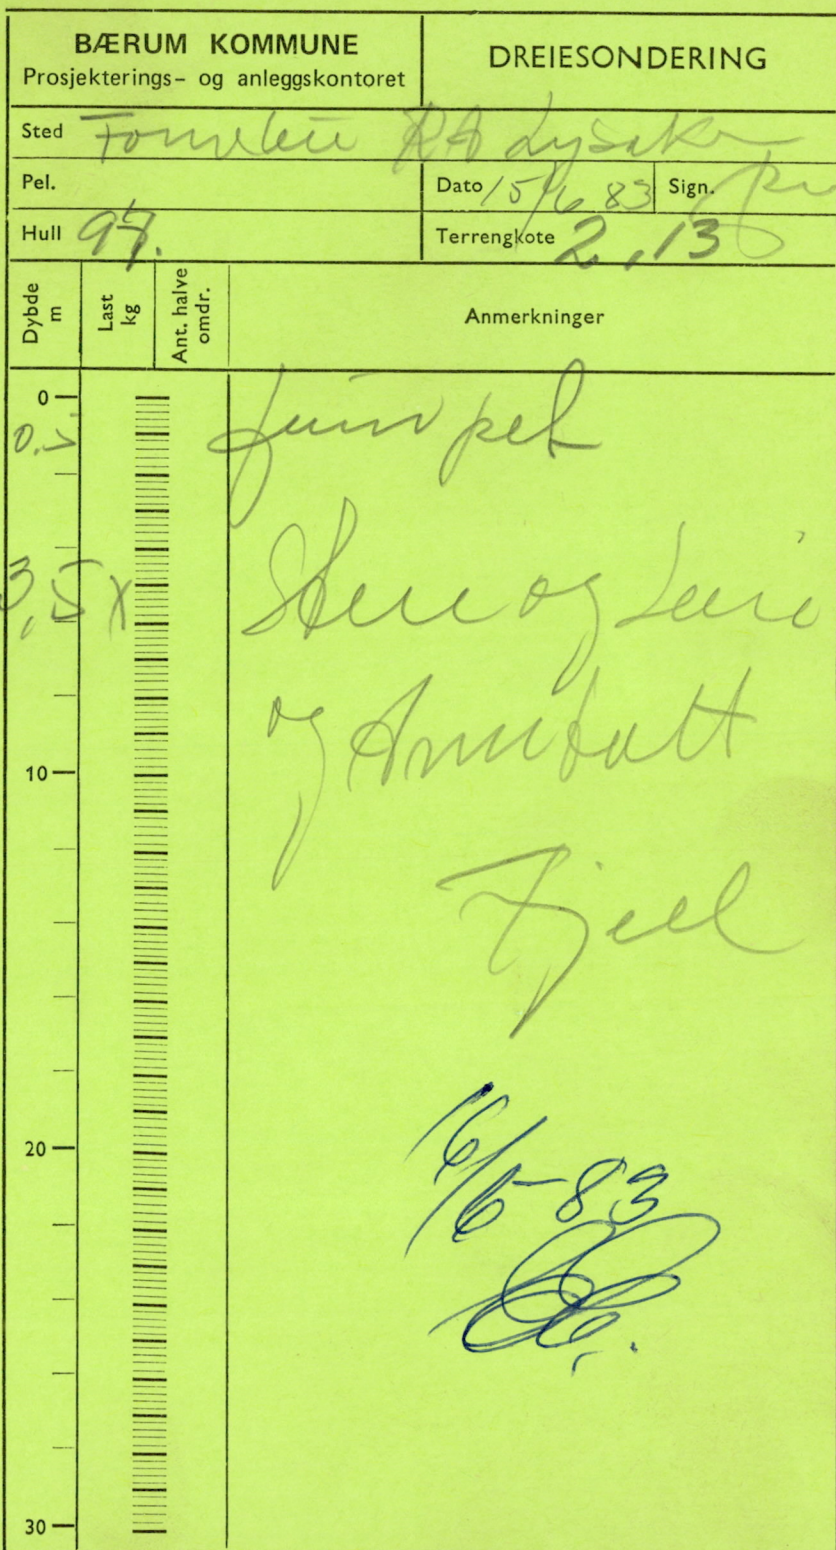 BÆRUM KOMMUNE
Prosjekterings- og anleggskontoret
DREIESONDERING
Sted Fornebu RA Lysaker
Pel.
Dato 15/6 83 Sign.
Hull 97.
Terrengkote 2,13
Dybde m
Last kg
Ant. halve omdr.
Anmerkninger
0
0,5
3,5 x Stein og Leire
og
10
Fjell
16/6-83
20
30